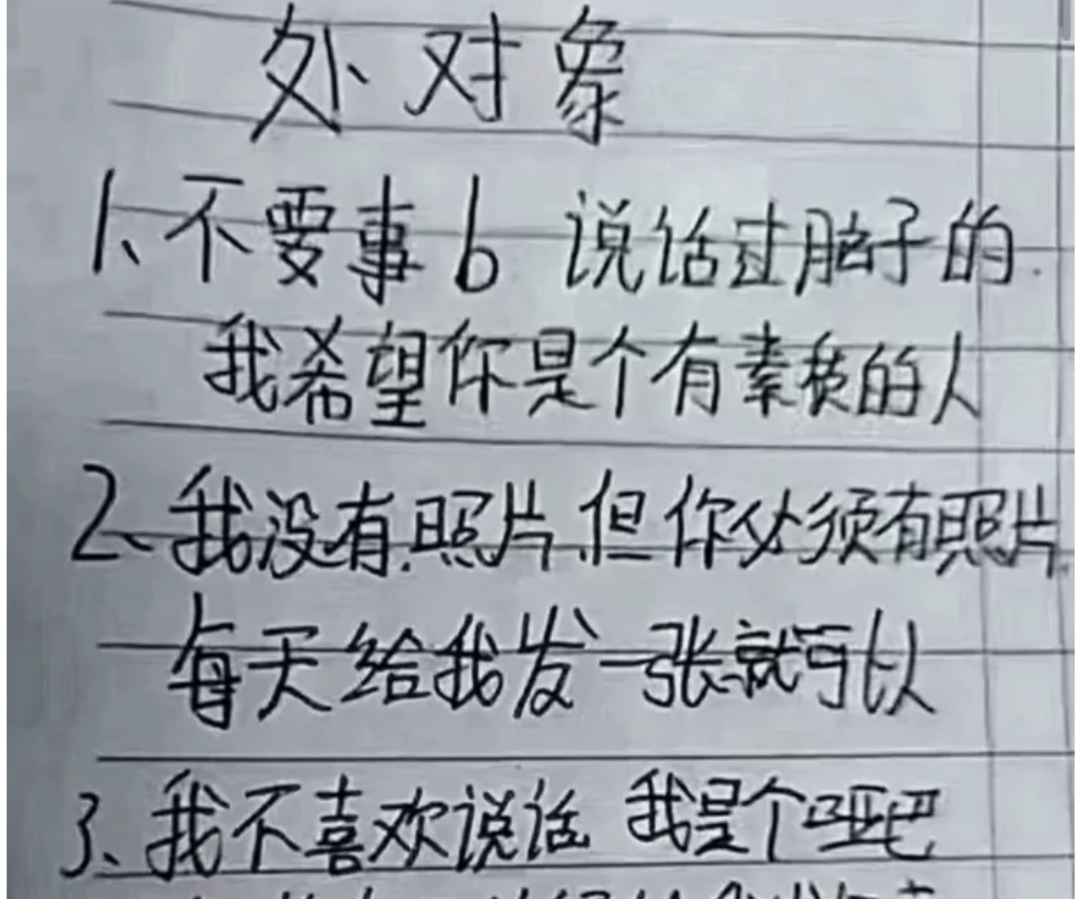 处对象
1、不要事b 说话过脑子的.
我希望你是个有素质的人
2、我没有照片,但你必须有照片.
每天给我发一张就可以
3、我不喜欢说话 我是个哑巴